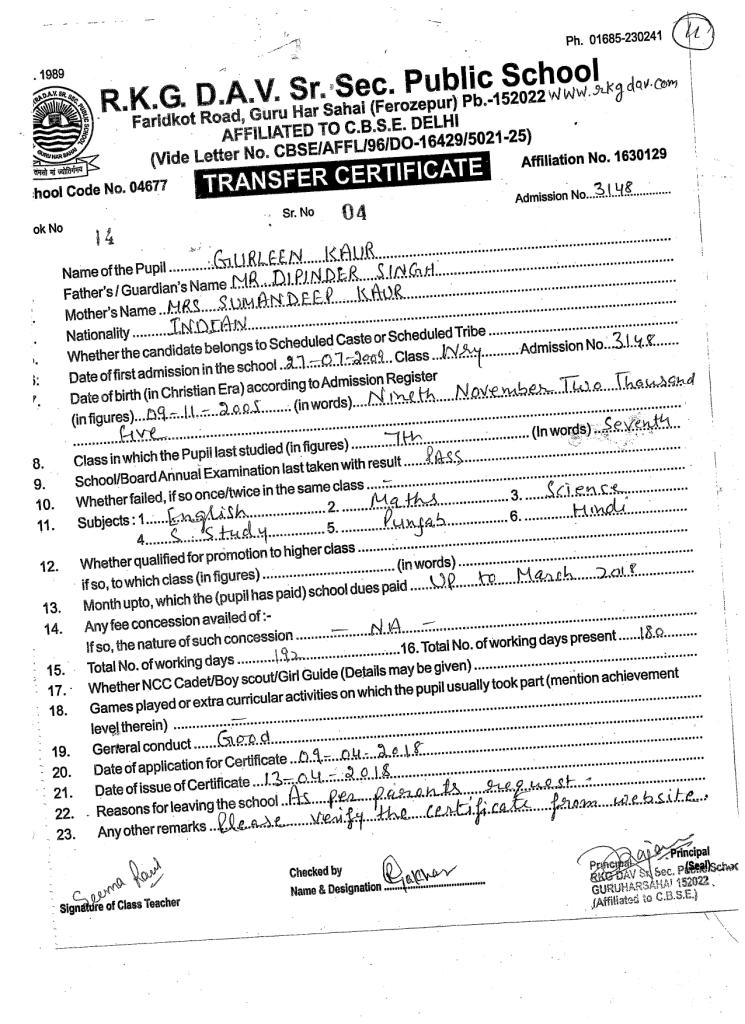 Ph. 01685-230241
. 1989
R.K.G. D.A.V. Sr. Sec. Public School
Faridkot Road, Guru Har Sahai (Ferozepur) Pb.-152022 www.rkgdav.com
AFFILIATED TO C.B.S.E. DELHI
(Vide Letter No. CBSE/AFFL/96/DO-16429/5021-25)
तमसो मां ज्योतिर्गमय
hool Code No. 04677
TRANSFER CERTIFICATE
Affiliation No. 1630129
ok No 14
Sr. No 04
Admission No...3148
Name of the Pupil ........GURLEEN KAUR
Father's / Guardian's Name MR DIPINDER SINGH
Mother's Name ..MRS SUMANDEEP KAUR
Nationality ........INDIAN
Whether the candidate belongs to Scheduled Caste or Scheduled Tribe
Date of first admission in the school ..27-07-2009.. Class ..Nsy.. Admission No..3148
Date of birth (in Christian Era) according to Admission Register
(in figures)...09-11-2005........ (in words)....Nineth November Two Thousand
five
8. Class in which the Pupil last studied (in figures) ........7th........ (In words) ..Seventh
9. School/Board Annual Examination last taken with result ......PASS
10. Whether failed, if so once/twice in the same class ....-
11. Subjects : 1....English........ 2. ....Maths........ 3. ....Science
4....S. Study........ 5. ....Punjab........ 6. ....Hindi
12. Whether qualified for promotion to higher class
if so, to which class (in figures) ........ (in words)
13. Month upto, which the (pupil has paid) school dues paid ....Up to March 2018
14. Any fee concession availed of :-
If so, the nature of such concession ........- NA -
15. Total No. of working days ........192........ 16. Total No. of working days present ....180
17. Whether NCC Cadet/Boy scout/Girl Guide (Details may be given)
18. Games played or extra curricular activities on which the pupil usually took part (mention achievement
level therein) ........-
19. General conduct ......Good
20. Date of application for Certificate ..09-04-2018
21. Date of issue of Certificate ..13-04-2018
22. Reasons for leaving the school ..As per parants request.
23. Any other remarks ..Please verify the certificate from website.
Seema Rani
Signature of Class Teacher
Checked by
Name & Designation
Principal
(Seal)
Principal
RKG DAV Sr. Sec. Public School
GURUHARSAHAI 152022
(Affiliated to C.B.S.E.)